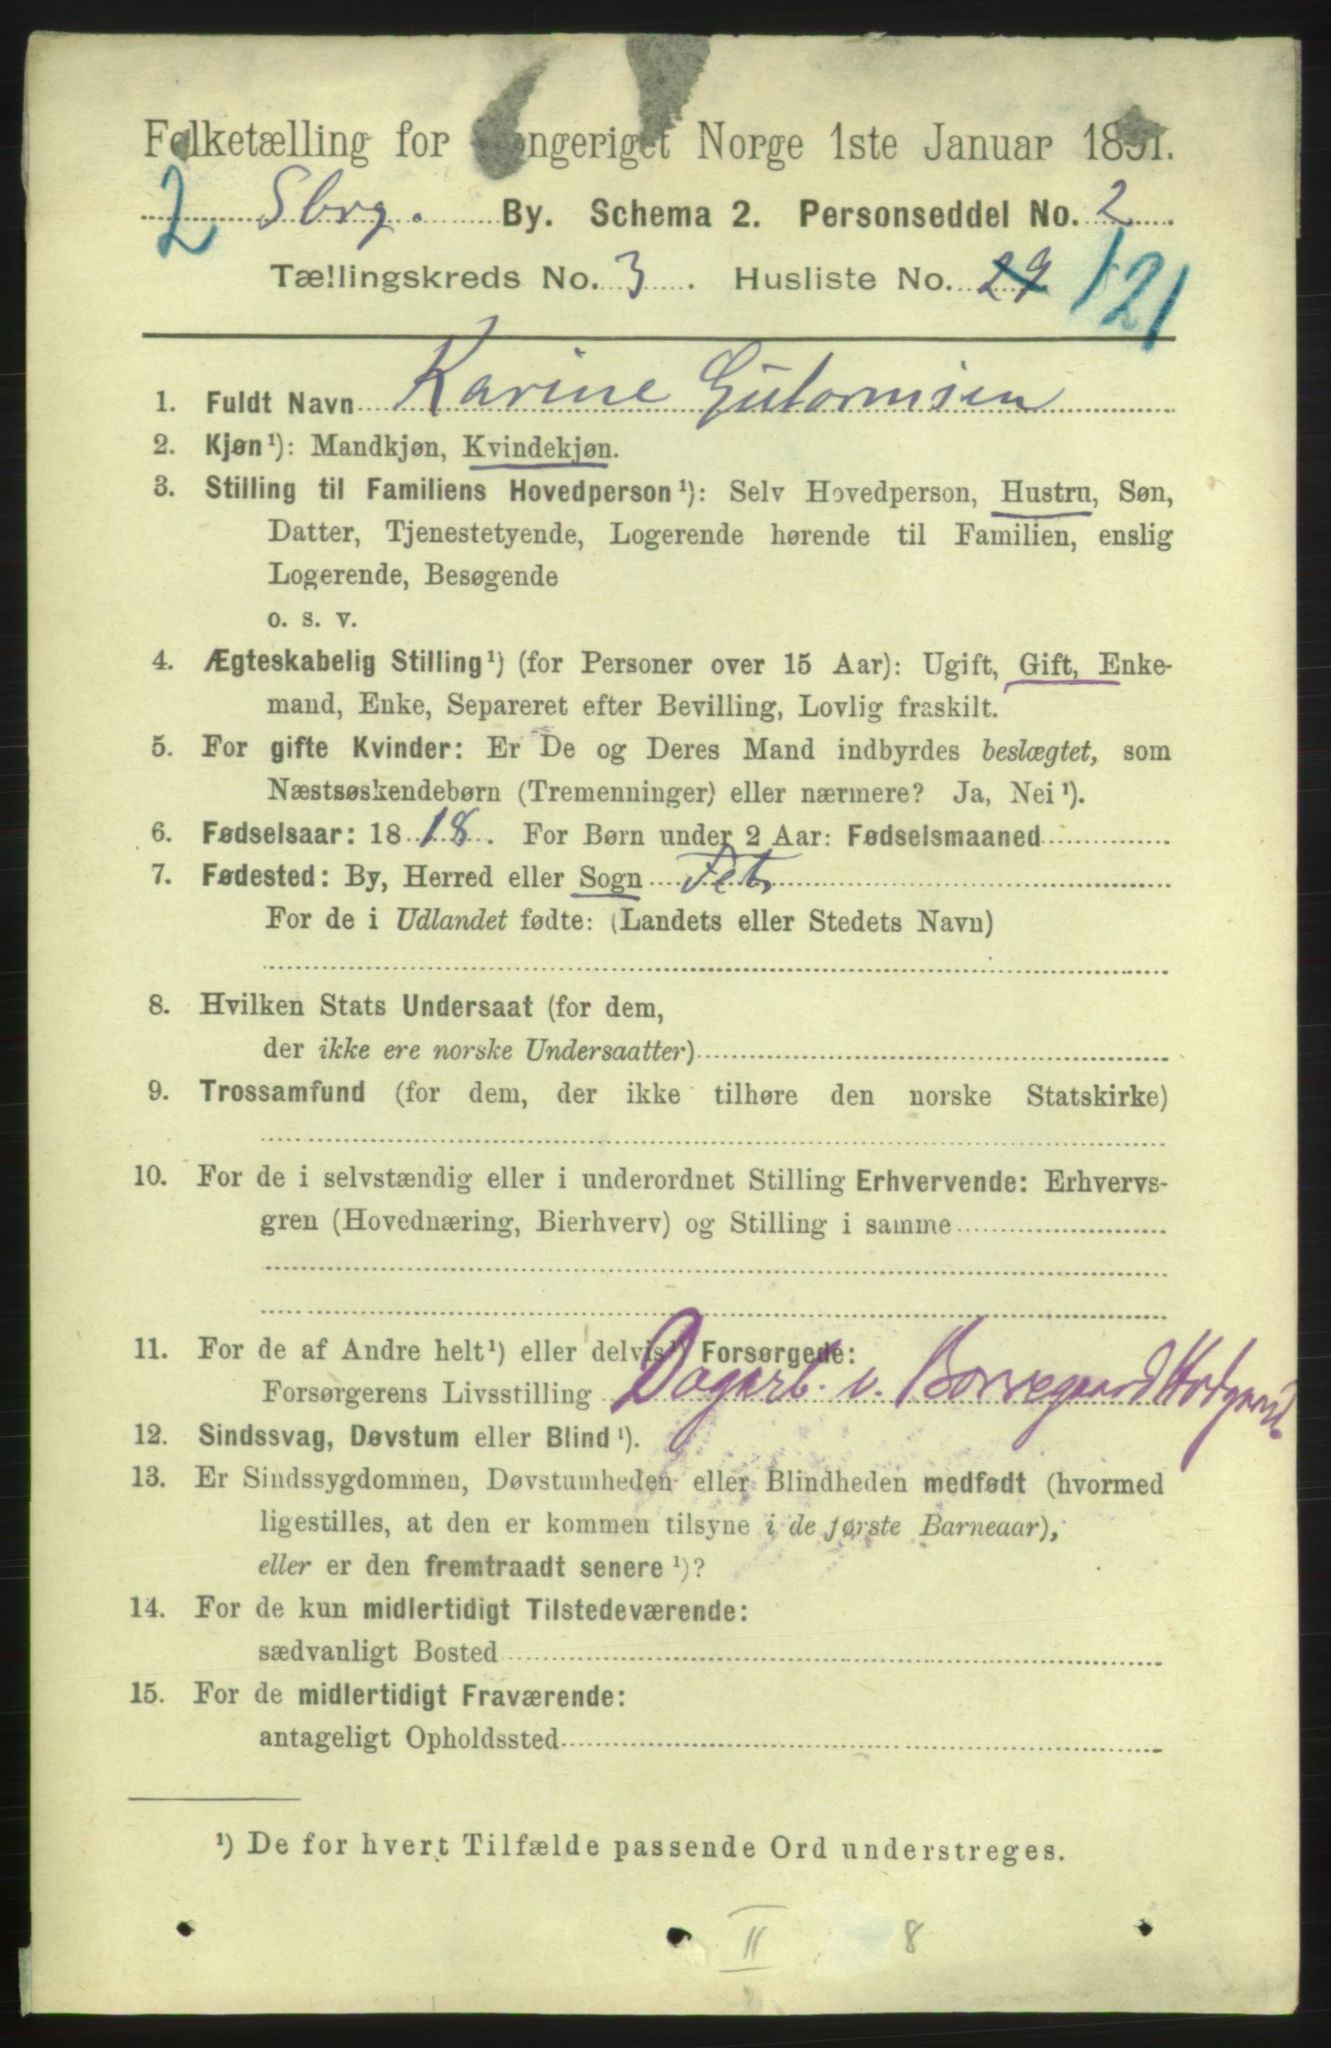 Folketælling for Kongeriget Norge 1ste Januar 1891.
2 Sbrg. By. Schema 2. Personseddel No. 2.
Tællingskreds No. 3. Husliste No. 29 121
1. Fuldt Navn Karine Gutormsen
2. Kjøn¹): Mandkjøn, Kvindekjøn.
3. Stilling til Familiens Hovedperson¹): Selv Hovedperson, Hustru, Søn,
Datter, Tjenestetyende, Logerende hørende til Familien, enslig
Logerende, Besøgende
o. s. v.
4. Ægteskabelig Stilling¹) (for Personer over 15 Aar): Ugift, Gift, Enke-
mand, Enke, Separeret efter Bevilling, Lovlig fraskilt.
5. For gifte Kvinder: Er De og Deres Mand indbyrdes beslægtet, som
Næstsøskendebørn (Tremenninger) eller nærmere? Ja, Nei¹).
6. Fødselsaar: 1818. For Børn under 2 Aar: Fødselsmaaned
7. Fødested: By, Herred eller Sogn Fet
For de i Udlandet fødte: (Landets eller Stedets Navn)
8. Hvilken Stats Undersaat (for dem,
der ikke ere norske Undersaatter)
9. Trossamfund (for dem, der ikke tilhøre den norske Statskirke)
10. For de i selvstændig eller i underordnet Stilling Erhvervende: Erhvervs-
gren (Hovednæring, Bierhverv) og Stilling i samme
11. For de af Andre helt¹) eller delvis¹) Forsørgede:
Forsørgerens Livsstilling Dagarb. v. Borregaard
12. Sindssvag, Døvstum eller Blind¹).
13. Er Sindssygdommen, Døvstumheden eller Blindheden medfødt (hvormed
ligestilles, at den er kommen tilsyne i de første Barneaar),
eller er den fremtraadt senere¹)?
14. For de kun midlertidigt Tilstedeværende:
sædvanligt Bosted
15. For de midlertidigt Fraværende:
antageligt Opholdssted
¹) De for hvert Tilfælde passende Ord understreges.
II 8